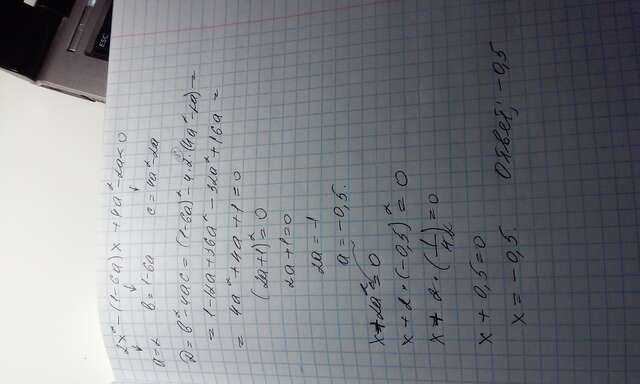 2x² - (1-6a)x + 4a² - 2a < 0
a=2 b=1-6a c=4a²-2a
D = b² - 4ac = (1-6a)² - 4·2·(4a²-2a) =
= 1-12a+36a² - 32a² + 16a =
= 4a² + 4a + 1 = 0
(2a+1)² = 0
2a+1=0
2a = -1
a = -0,5.
x+2a² = 0
x + 2 · (-0,5)² = 0
x + 2 · (1/4) = 0
x + 0,5 = 0
x = -0,5. Ответ; -0,5
ESC